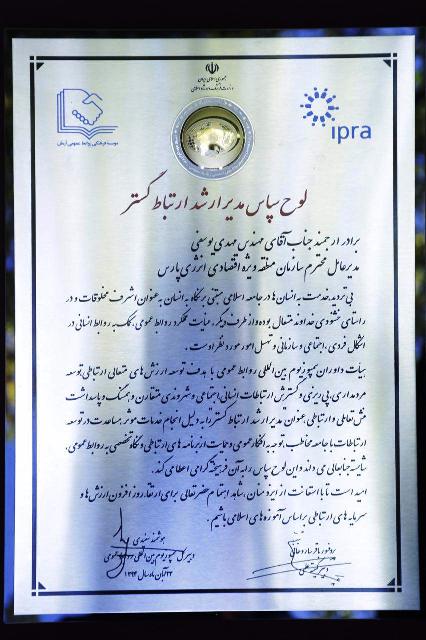 جمهوری اسلامی ایران
ipra
موسسه فرهنگی روابط عمومی آرمان
لوح سپاس مدیر ارشد ارتباط گستر
برادر ارجمند جناب آقای مهندس مهدی یوسفی
مدیرعامل محترم سازمان منطقه ویژه اقتصادی انرژی پارس
بی تردید خدمت به انسان‌ها در جامعه اسلامی مبتنی بر نگاه به انسان به عنوان اشرف مخلوقات و در
راستای خشنودی خداوند متعال بوده و از طرف دیگر، عملکرد روابط عمومی، کمک به روابط انسانی در
اشکال فردی، اجتماعی و سازمانی و تسهیل امور مورد نظر است.
هیات داوران سمپوزیوم بین‌المللی روابط عمومی با هدف توسعه ارزش‌های متعالی ارتباطی، توسعه
مردمداری، پی‌ریزی و گسترش ارتباطات انسانی، اجتماعی و شهروندی متقارن و همسنگ و پاسداشت
منش تعاملی و ارتباطی، بعنوان مدیر ارشد ارتباط گستر را به دلیل انجام خدمات موثر، مساعدت در توسعه
ارتباطات با جامعه مخاطب، توجه به افکار عمومی و حمایت از برنامه‌های ارتباطی و نگاه تخصصی به روابط عمومی،
شایسته جنابعالی می داند و این لوح سپاس را به آن فرهیخته گرامی اعطا می کند.
امید است تا با استعانت از ایزد منان، شاهد اهتمام حضرتعالی برای ارتقاء روز افزون ارزش‌ها و
سرمایه های ارتباطی بر اساس آموزه های اسلامی باشیم.
هوشمند سفیدی
دبیر کل سمپوزیوم بین‌المللی روابط عمومی
۲۲ آبان ماه سال ۱۳۹۴
پروفسور باقر ساروخانی
دبیر کمیته علمی